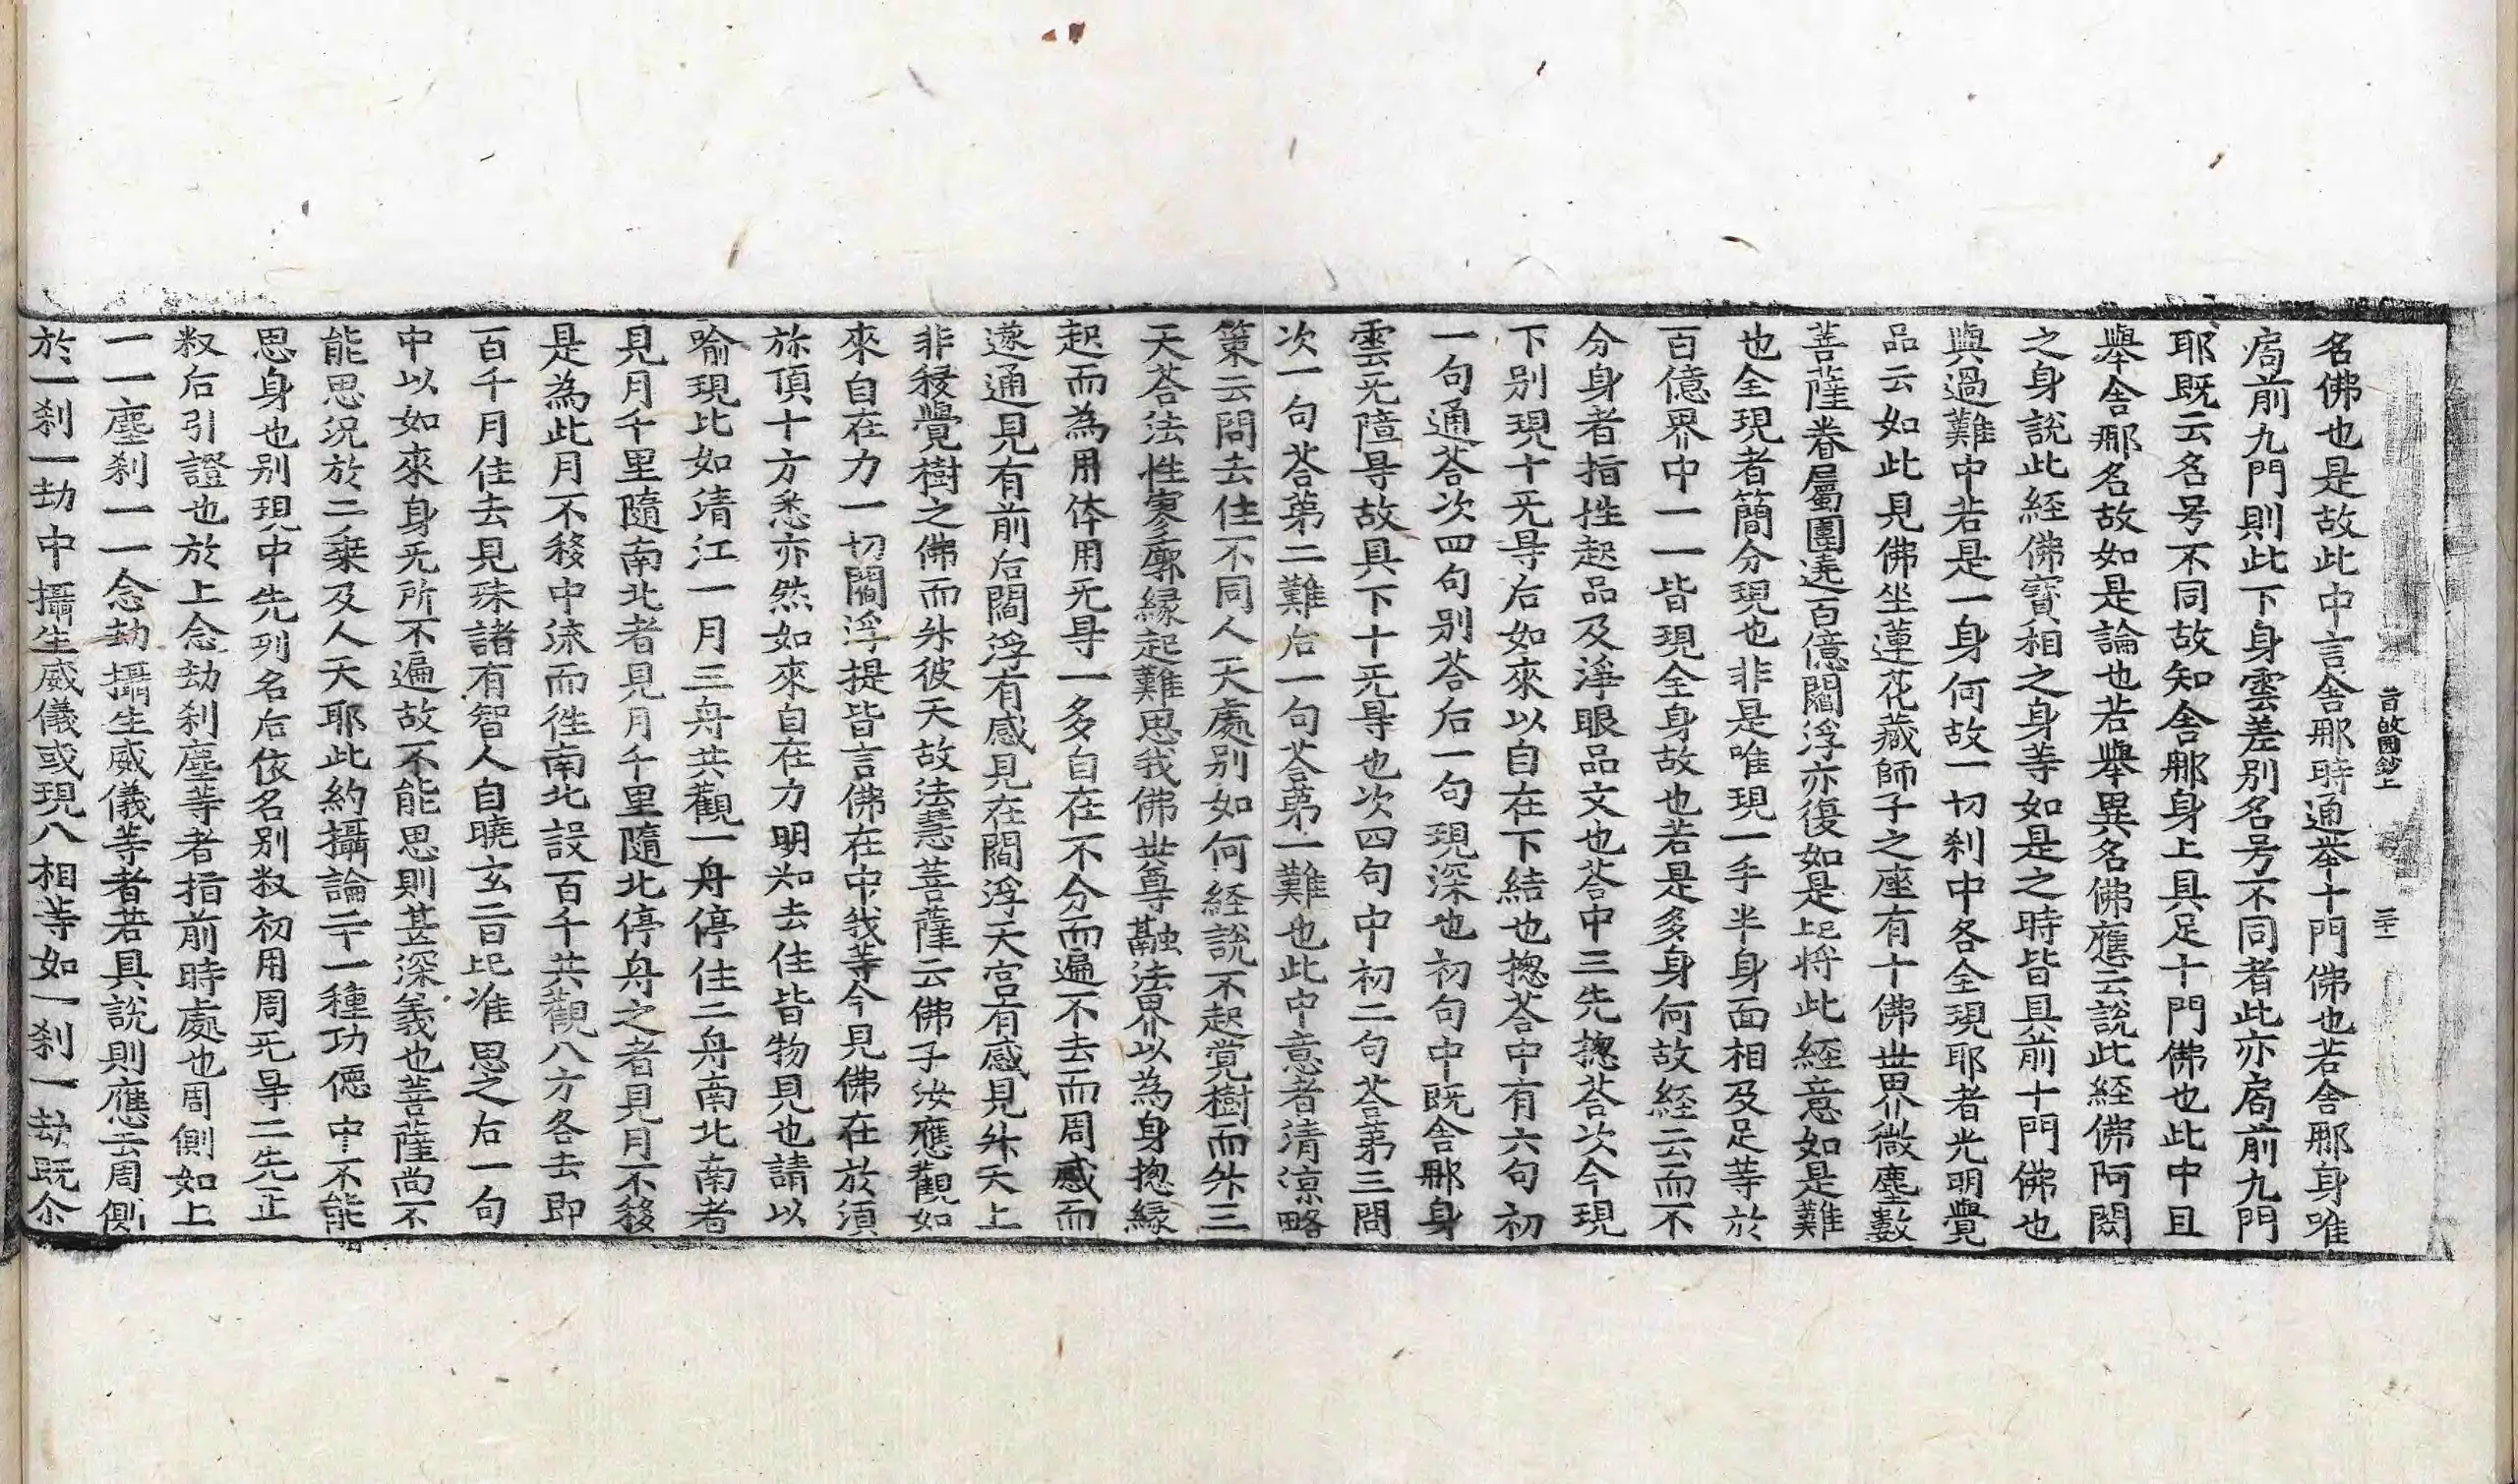 昔的圎鈔上 三十一
名佛也是故此中言舍那時通举十門佛也若舍那身唯
局前九門則此下身雲差别名号不同者此亦局前九門
耶既云名号不同故知舍那身上具足十門佛也此中且
舉舍那名故如是論也若舉異名佛應云說此経佛阿閦
之身說此経佛寶相之身等如是之時皆具前十門佛也
與過難中若是一身何故一切刹中各全現耶者光明覺
品云如此見佛坐蓮花藏師子之座有十佛世界微塵數
菩薩眷屬圍遶百億閻浮亦復如是記将此経意如是難
也全現者簡分現也非是唯現一手半身面相及足等於
百億界中一一皆現全身故也若是多身何故経云而不
分身者指性起品及淨眼品文也荅中三先捴荅次今現
下别現十无㝵后如來以自在下結也捴荅中有六句初
一句通荅次四句别荅后一句現深也初句中既舍那身
雲无障㝵故具下十无㝵也次四句中初二句荅第三問
次一句荅第二難后一句荅第一難也此中意者清涼略
策云問去住不同人天處别如何経說不起覚樹而升三
天荅法性寥廓緣起難思我佛世尊融法界以為身捴緣
起而為用体用无㝵一多自在不分而遍不去而周感而
遂通見有前后閻浮有感見在閻浮天宫有感見升天上
非移覺樹之佛而升彼天故法慧菩薩云佛子汝應觀如
來自在力一切閻浮提皆言佛在中我等今見佛在於須
弥頂十方悉亦然如來自在力明知去住皆物見也請以
喻現比如清江一月三舟共觀一舟停住二舟南北南者
見月千里隨南北者見月千里隨北停舟之者見月不移
是為此月不移中流而徃南北設百千共觀八方各去即
百千月住去見殊諸有智人自曉玄二旨比准思之右一句
中以如來身无所不遍故不能思則甚深義也菩薩尚不
能思况於二乗及人天耶此約攝論二十一種功德中不能
思身也别現中先列名后依名别釈初用周无㝵二先正
釈后引證也於上念劫刹塵等者指前時處也周側如上
一一塵刹一一念劫攝生威儀等者若具說則應云周側
於一刹一劫中攝生威儀或現八相等如一刹一劫既尒